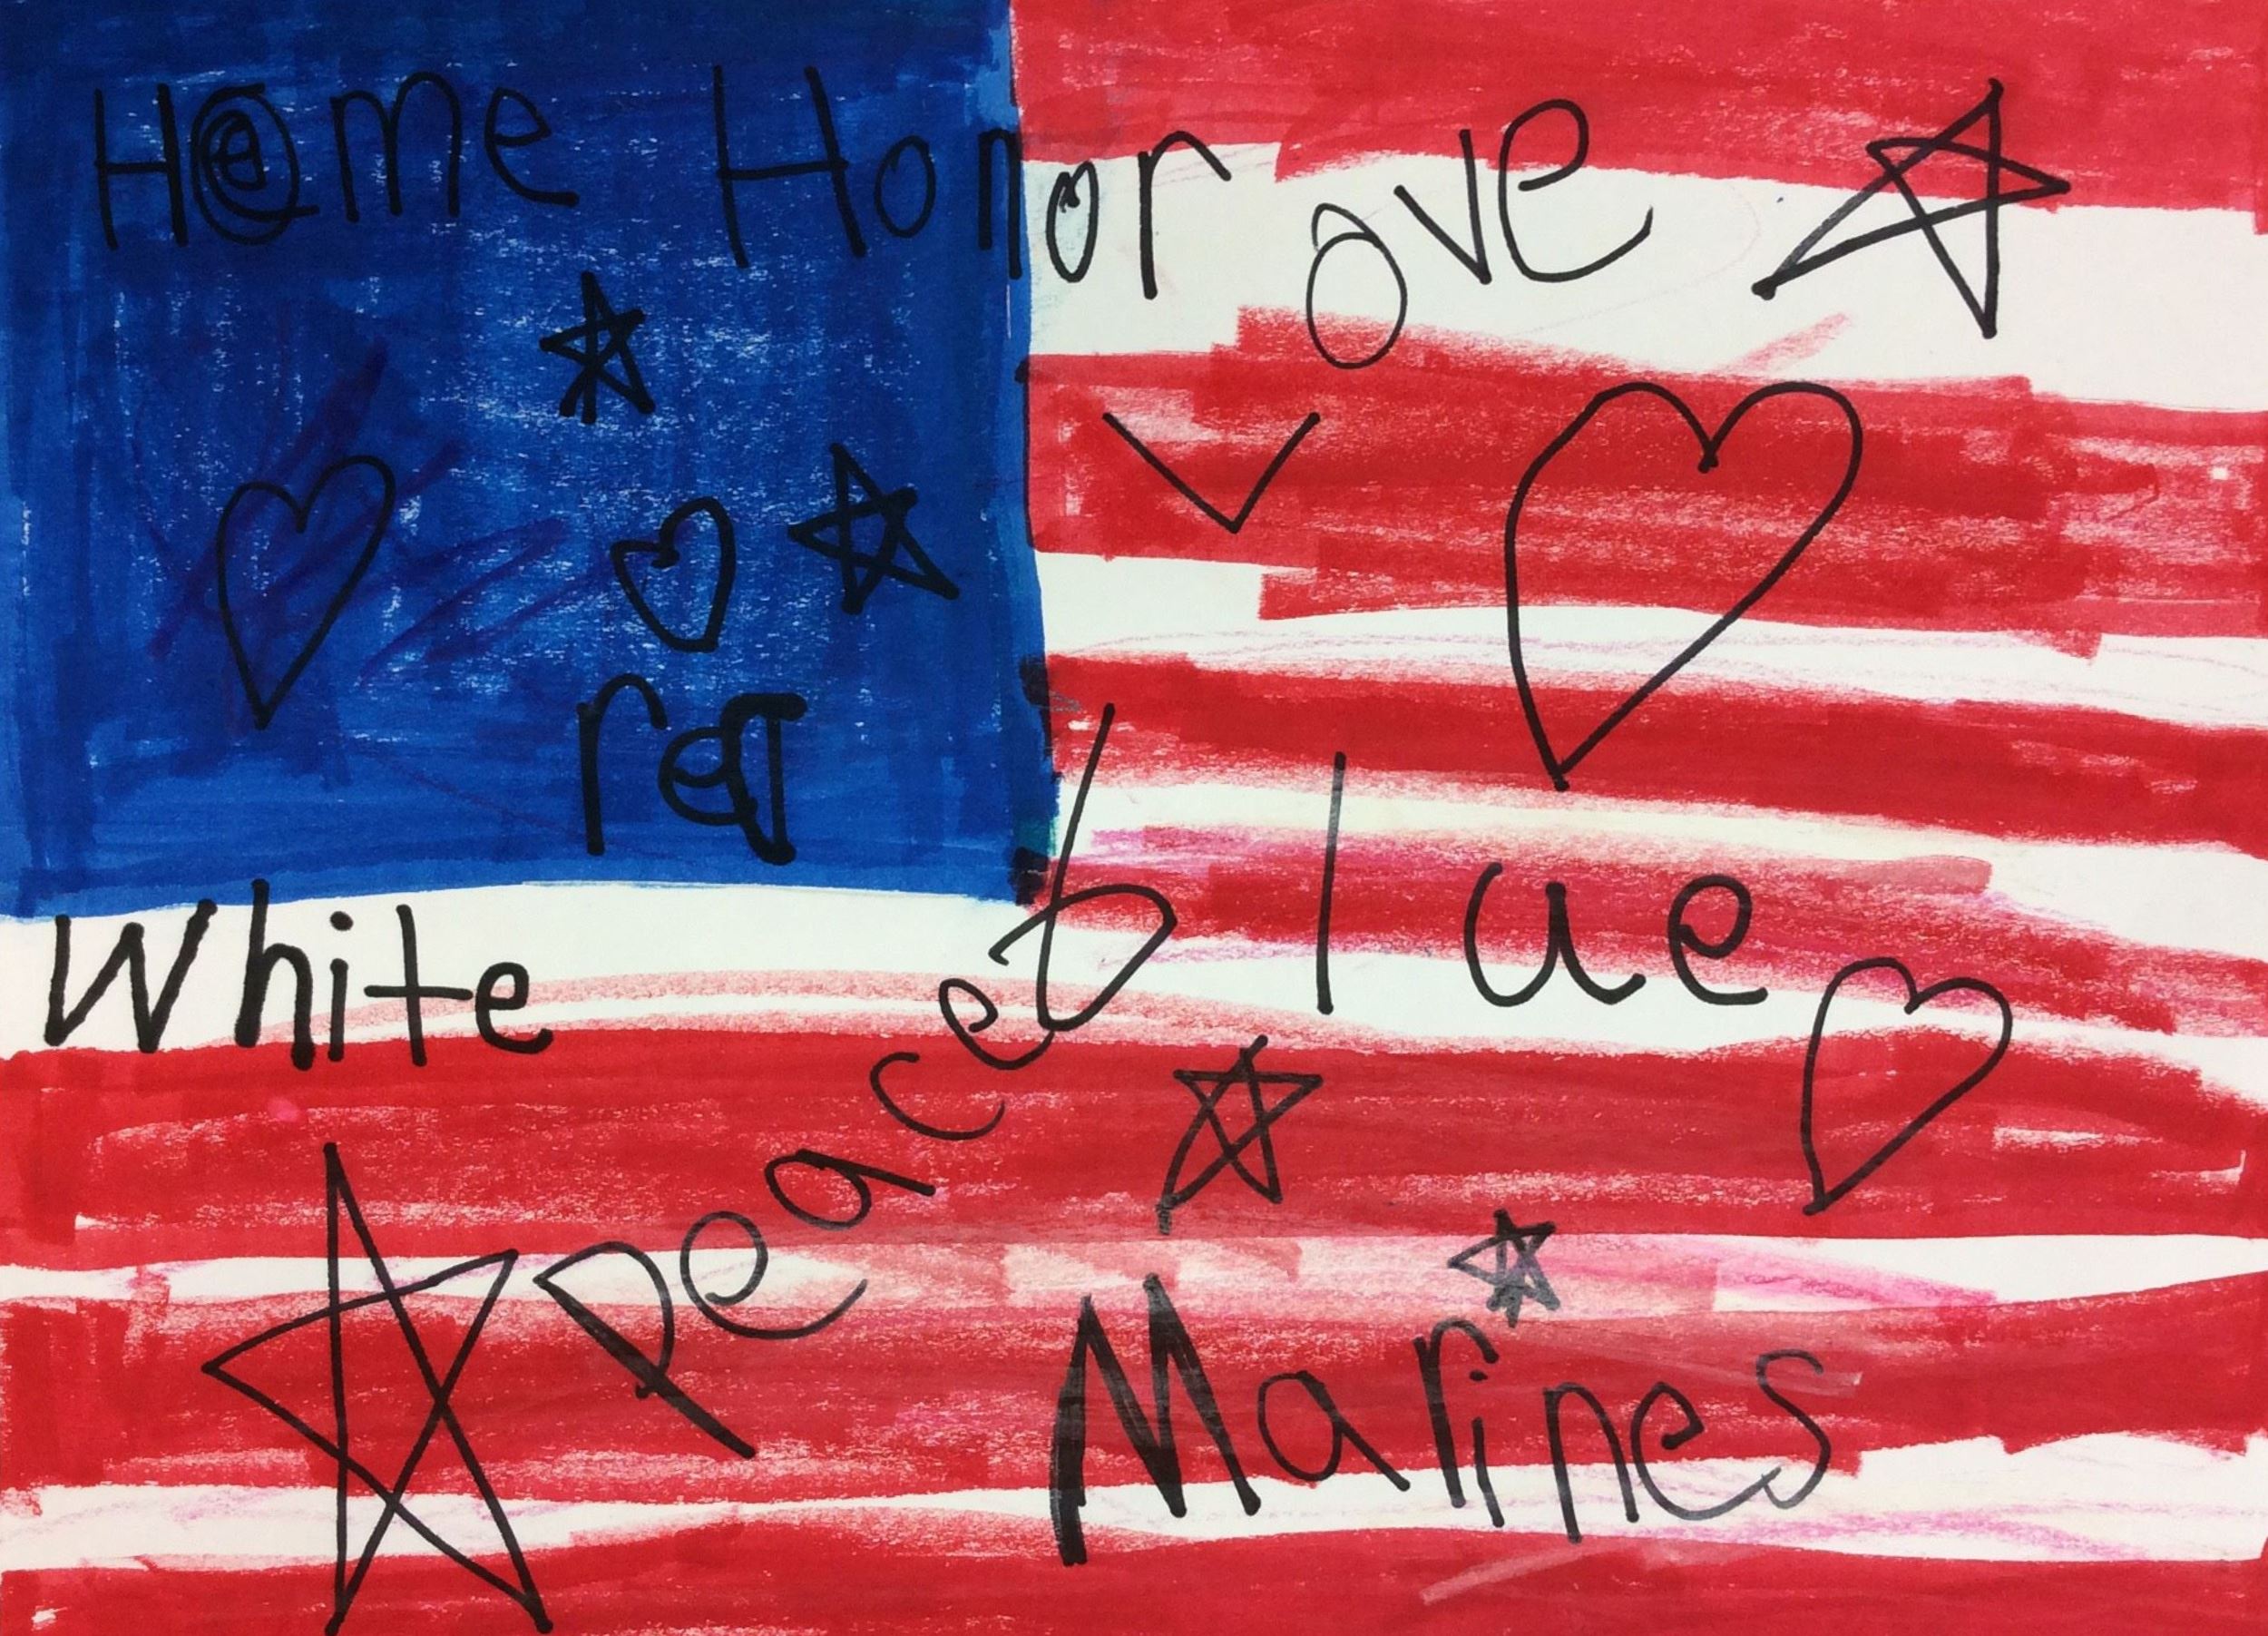 Home Honor Love
red
White blue
peace
Marines